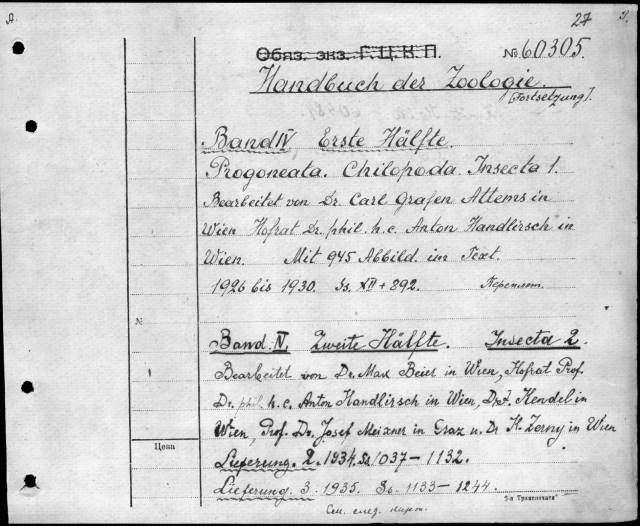 27
Обяз. экз. Г.Ц.К.П. № 60305.
Handbuch der Zoologie.
[Fortsetzung].
Band IV, Erste Hälfte.
Progoneata. Chilopoda. Insecta 1.
Bearbeitet von Dr. Carl Grafen Attems in
Wien Hofrat Dr. phil. h. c. Anton Handlirsch in
Wien. Mit 945 Abbild. im Text.
1926 bis 1930. Ss. XII + 892. Переплет.
№
Band IV. Zweite Hälfte. Insecta 2.
Bearbeitet von Dr. Max Beier in Wien, Hofrat Prof.
Dr. phil. h. c. Anton Handlirsch in Wien, Dr. F. Hendel in
Wien, Prof. Dr. Josef Meixner in Graz u. Dr. H. Zerny in Wien
Цена
Lieferung. 2. 1934. Ss. 1037–1132.
Lieferung. 3. 1935. Ss. 1133–1244.
См. след. карт.